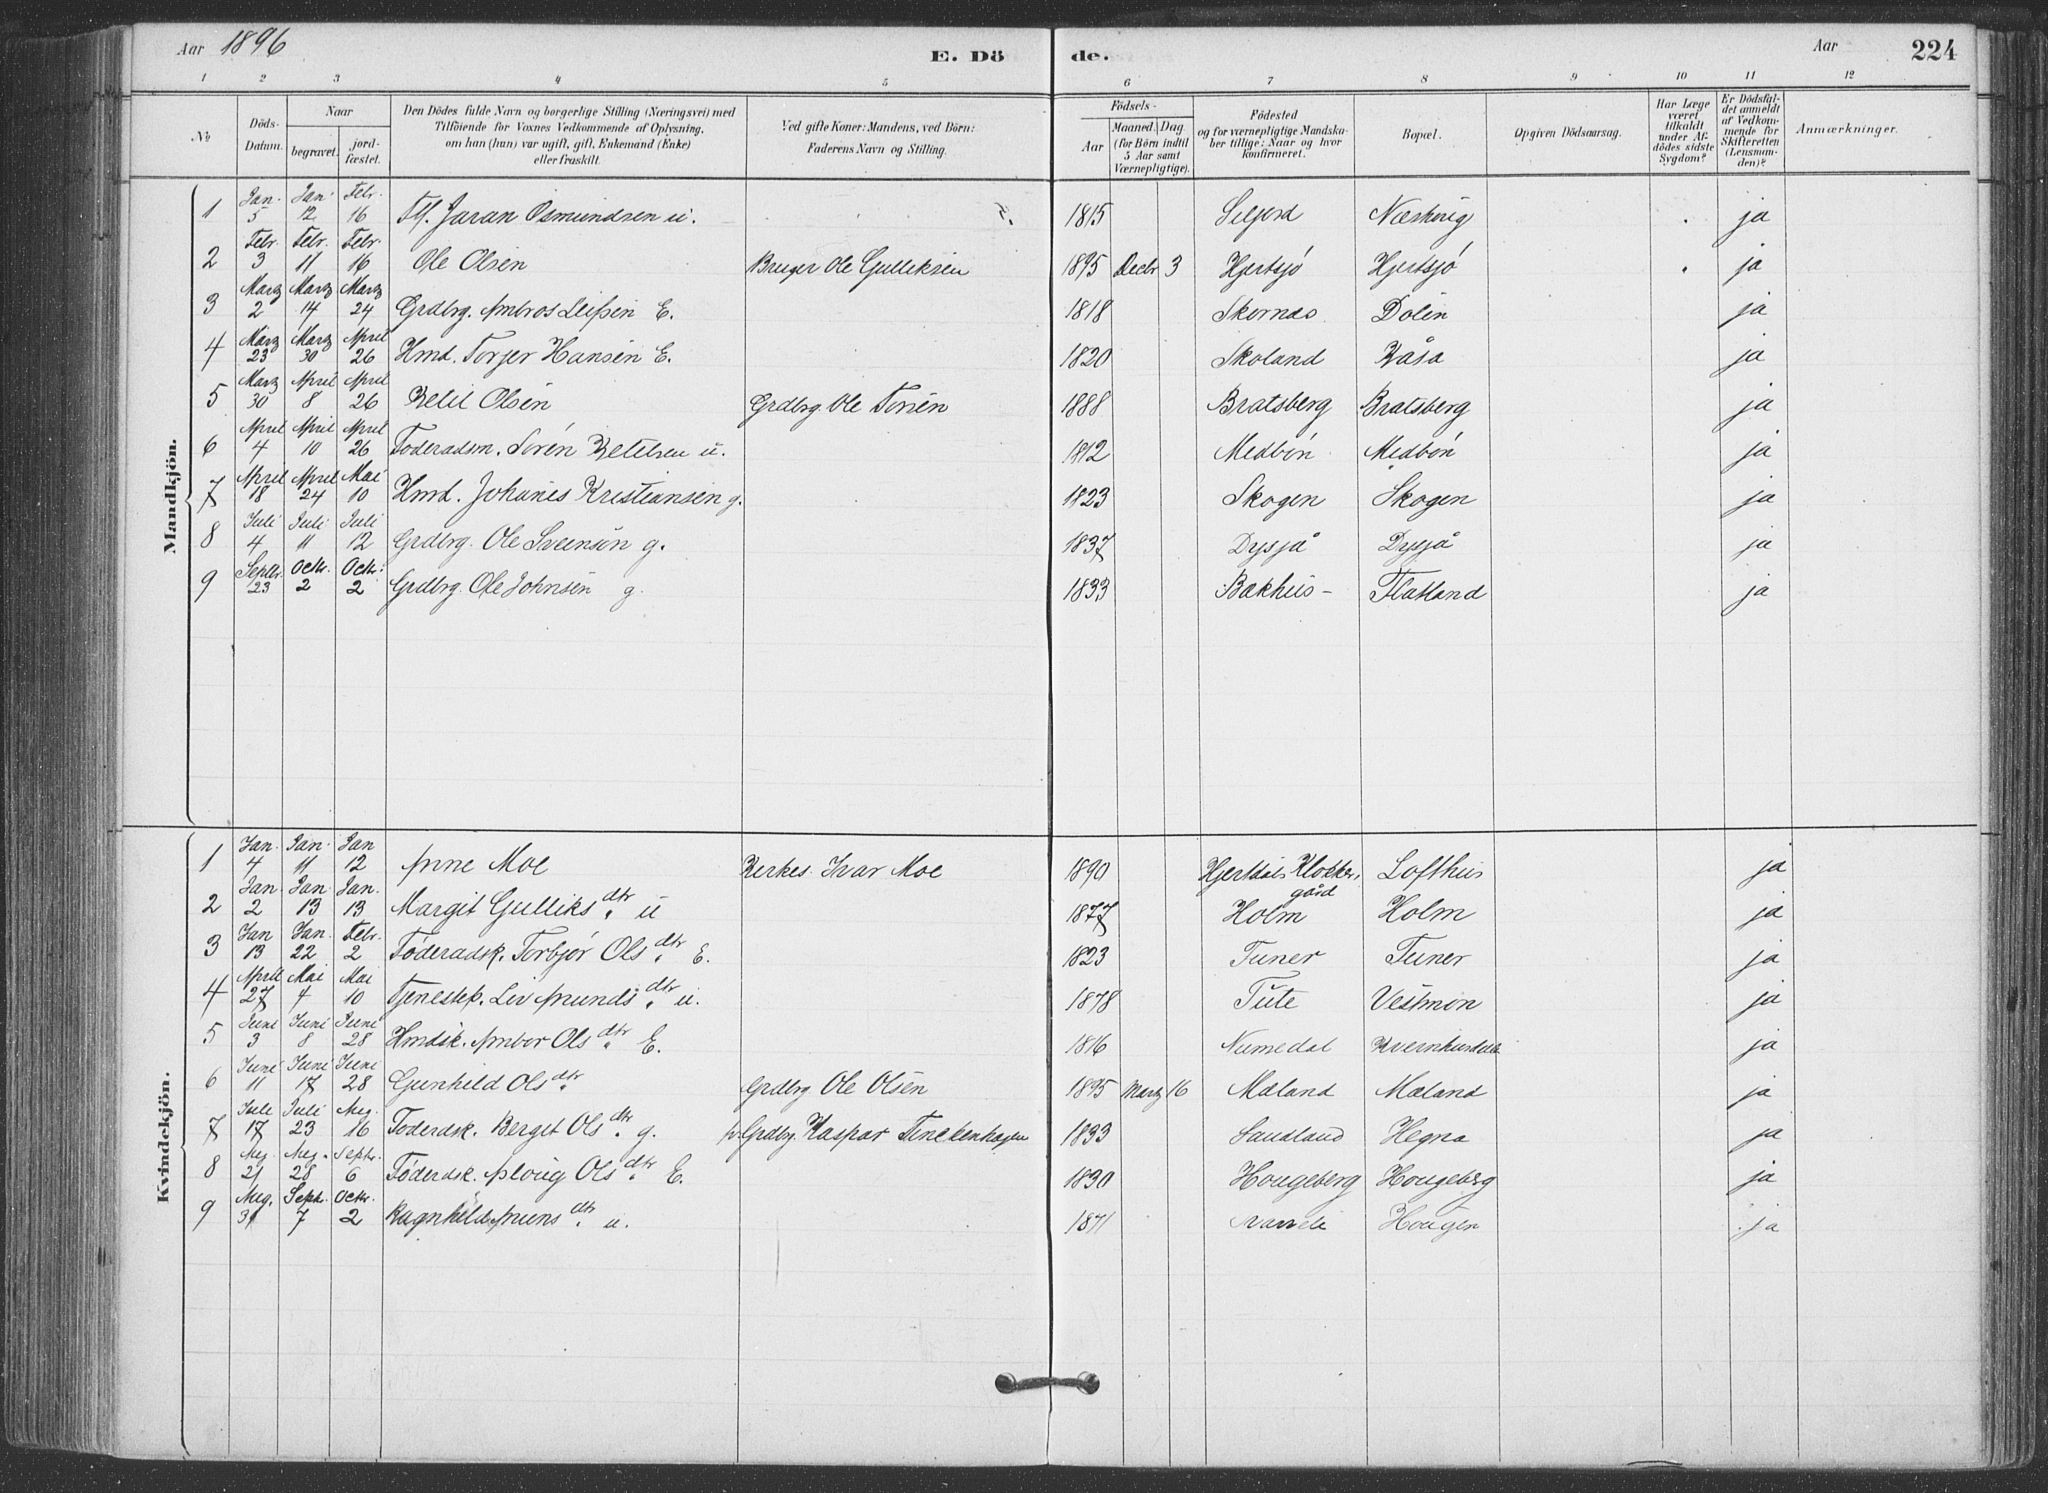 Aar 1896 E. Dö de. Aar 224
1 2 3 4 5 6 7 8 9 10 11 12
No
Döds-Datum.
Naar
begravet.
jord-fæstet.
Den Dödes fulde Navn og borgerlige Stilling (Næringsvei) med
Tilföiende for Voxnes Vedkommende af Oplysning,
om han (hun) var ugift, gift, Enkemand (Enke)
eller fraskilt.
Ved gifte Koner: Mandens, ved Börn:
Faderens Navn og Stilling.
Födsels-
Aar
Maaned. Dag.
(for Börn indtil
5 Aar samt
Værnepligtige).
Födested
og for værnepligtige Mandska-
ber tillige: Naar og hvor
konfirmeret.
Bopæl.
Opgiven Dödsaarsag.
Har Læge
været
tilkaldt
under Af-
dödes sidste
Sygdom?
Er Dödsfal-
det anmeldt
af Vedkom-
mende for
Skifteretten
(Lensman-
den)?
Anmærkninger.
Mandkjön.
1 Jan. 5 Jan. 12 Febr. 16 Jaran Osmundsen u. 1815 Seljord ja
2 Febr. 3 Febr. 11 Febr. 16 Ole Olsen Bruger Ole Gulleksen 1895 Decbr 3 Hjertsjö Hjertsjö ja
3 Marz 2 Marz 14 Marz 24 Grdbrg. Ambros Leifsen E. 1818 Skornes Dolen ja
4 Marz 23 Marz 30 April 26 Hmd. Torjer Hansen E. 1820 Skoland Kåsa ja
5 Marz 30 April 8 April 26 Ketil Olsen Grdbrg. Ole 1888 Bratsberg Bratsberg ja
6 April 4 April 10 April 26 Föderadsm. Sören Ketelsen u. 1812 Medbön Medbön ja
7 April 18 April 24 Mai 10 Hmd. Johanes Kristiansen g. 1823 Skogen Skogen ja
8 Juli 4 Juli 11 Juli 12 Grdbrg. Ole Svensen g. 1837 Dysjå Dysjå ja
9 Septbr. 23 Octbr. 2 Octbr. 2 Grdbrg. Ole Johnsen g. 1833 Bakhus - Flatland ja
Kvindekjön.
1 Jan. 4 Jan. 11 Jan 12 Anne Moe Kirkes. Ivar Moe 1890 Hjertdals Klokker-gård Lofthus ja
2 Jan. 2 Jan. 13 Jan. 13 Margit Gulliksdtr. u 1877 Holm Holm ja
3 Jan 13 Jan. 22 Febr. 2 Föderadsk. Torbjör Olsdtr. E. 1823 Tuner Tuner ja
4 April 27 Mai 4 Mai 10 Tjenestep. Liv Amundsdtr. u. 1878 Tute Vestmon ja
5 Juni 3 Juni 8 Juni 28 Hmdsk. Ambor Olsdtr. E. 1816 Numedal ja
6 Juni 11 Juni 17 Juni 28 Gunhild Olsdtr. Grdbrg Ole Olsen 1895 Marz 16 Mæland Mæland ja
7 Juli 17 Juli 23 Aug. 16 Föderdsk. Berget Olsdtr. g. Grdbrg. Kaspar Finckenhagen 1833 Sandland Hegna ja
8 Aug. 21 Aug. 28 Septbr. 6 Föderadsk. Asloug Olsdtr. E. 1830 Hougeberg Hougeberg ja
9 Aug. 31 Septr. 7 Octbr. 2 Ragnhild Aunsdtr. u. 1871 Hougen ja